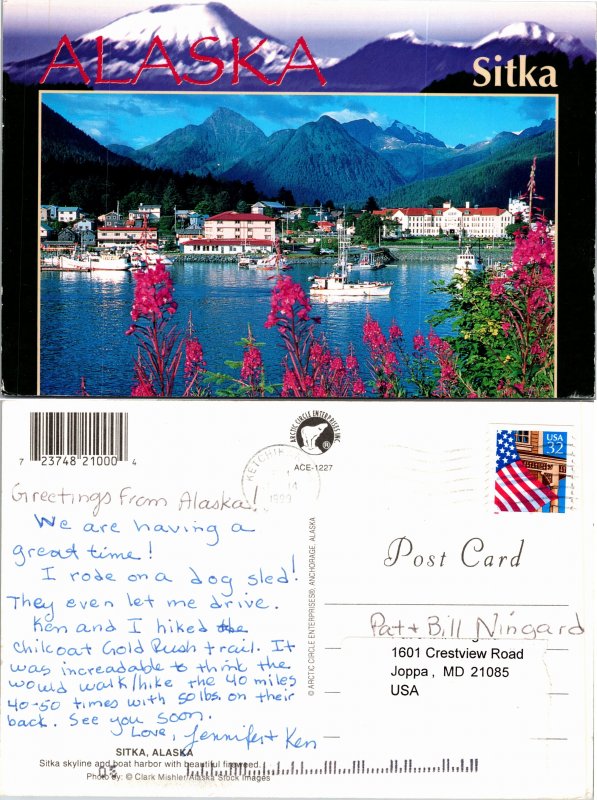 ALASKA
Sitka
7 23748 21000 4
ARCTIC CIRCLE ENTERPRISES INC
®
ACE-1227
KETCHIK
14
1999
USA
32
Greetings From Alaska!
We are having a
great time!
I rode on a dog sled!
They even let me drive.
Ken and I hiked the
Chilcoat Gold Rush trail. It
was increadable to think the
would walk/hike the 40 miles
40-50 times with 50 lbs. on their
back. See you soon.
Love, Jennifer + Ken
SITKA, ALASKA
Sitka skyline and boat harbor with beautiful fireweed.
Photo by: © Clark Mishler/Alaska Stock Images
© ARCTIC CIRCLE ENTERPRISES®, ANCHORAGE, ALASKA
Post Card
Pat + Bill Ningard
1601 Crestview Road
Joppa, MD 21085
USA